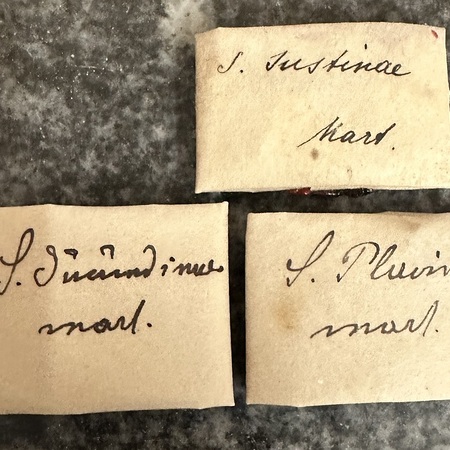 S. Justinae
Mart.
S. Jucundinae
mart.
S. Plavin
mart.